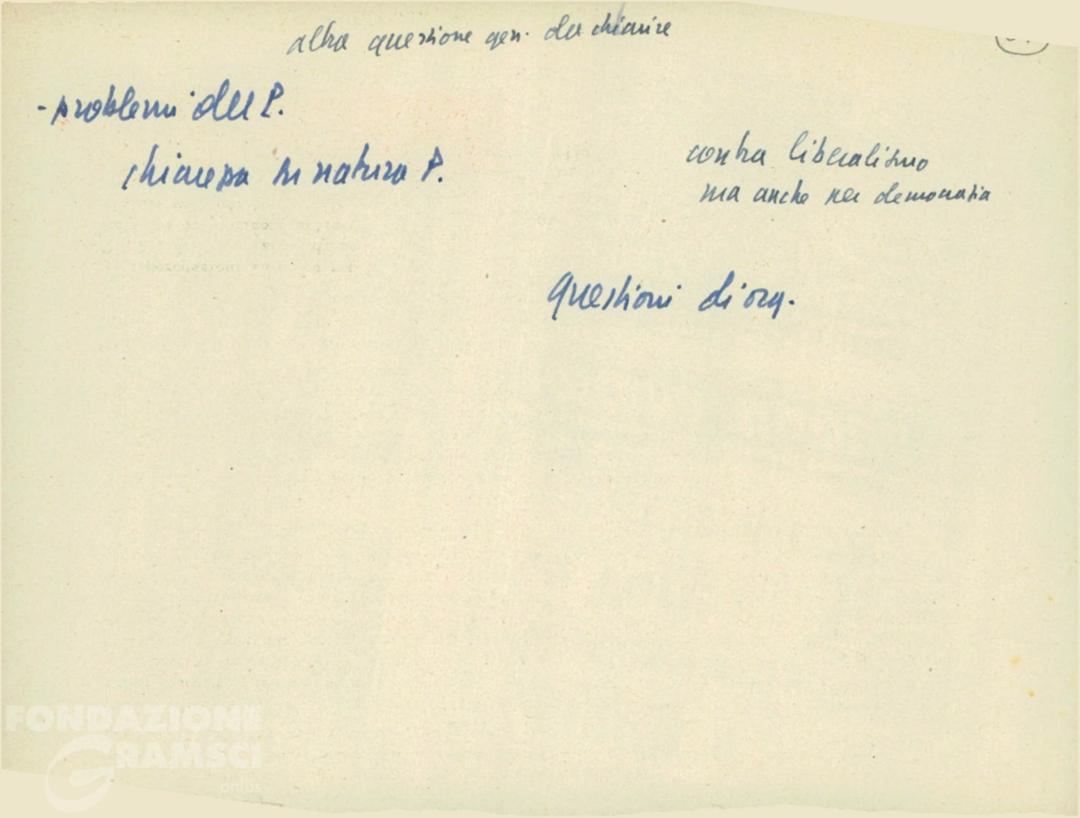 altra questione gen. da chiarire
- problemi del P.
chiarezza su natura P.
contra liberalismo
ma anche per democrazia
Questioni di org.
FONDAZIONE
GRAMSCI
onlus